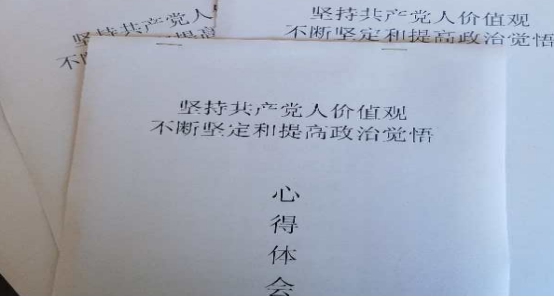 坚持共产党人
提高
坚持共产党人价值观
不断坚定和提高政治觉悟
坚持共产党人价值观
不断坚定和提高政治觉悟
心
得
体
会